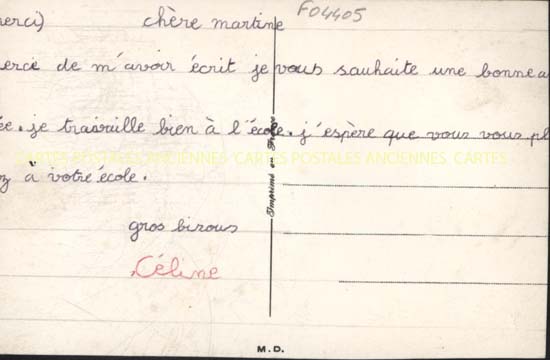 erci) chère martine F04405
erci de m'avoir écrit je vous souhaite une bonne a
ée. je travaille bien à l'école. j'espère que vous vous pl
CARTES POSTALES ANCIENNES CARTES POSTALES ANCIENNES CARTES
ez à votre école.
gros bizous
Céline
Imprimé en France
M.D.